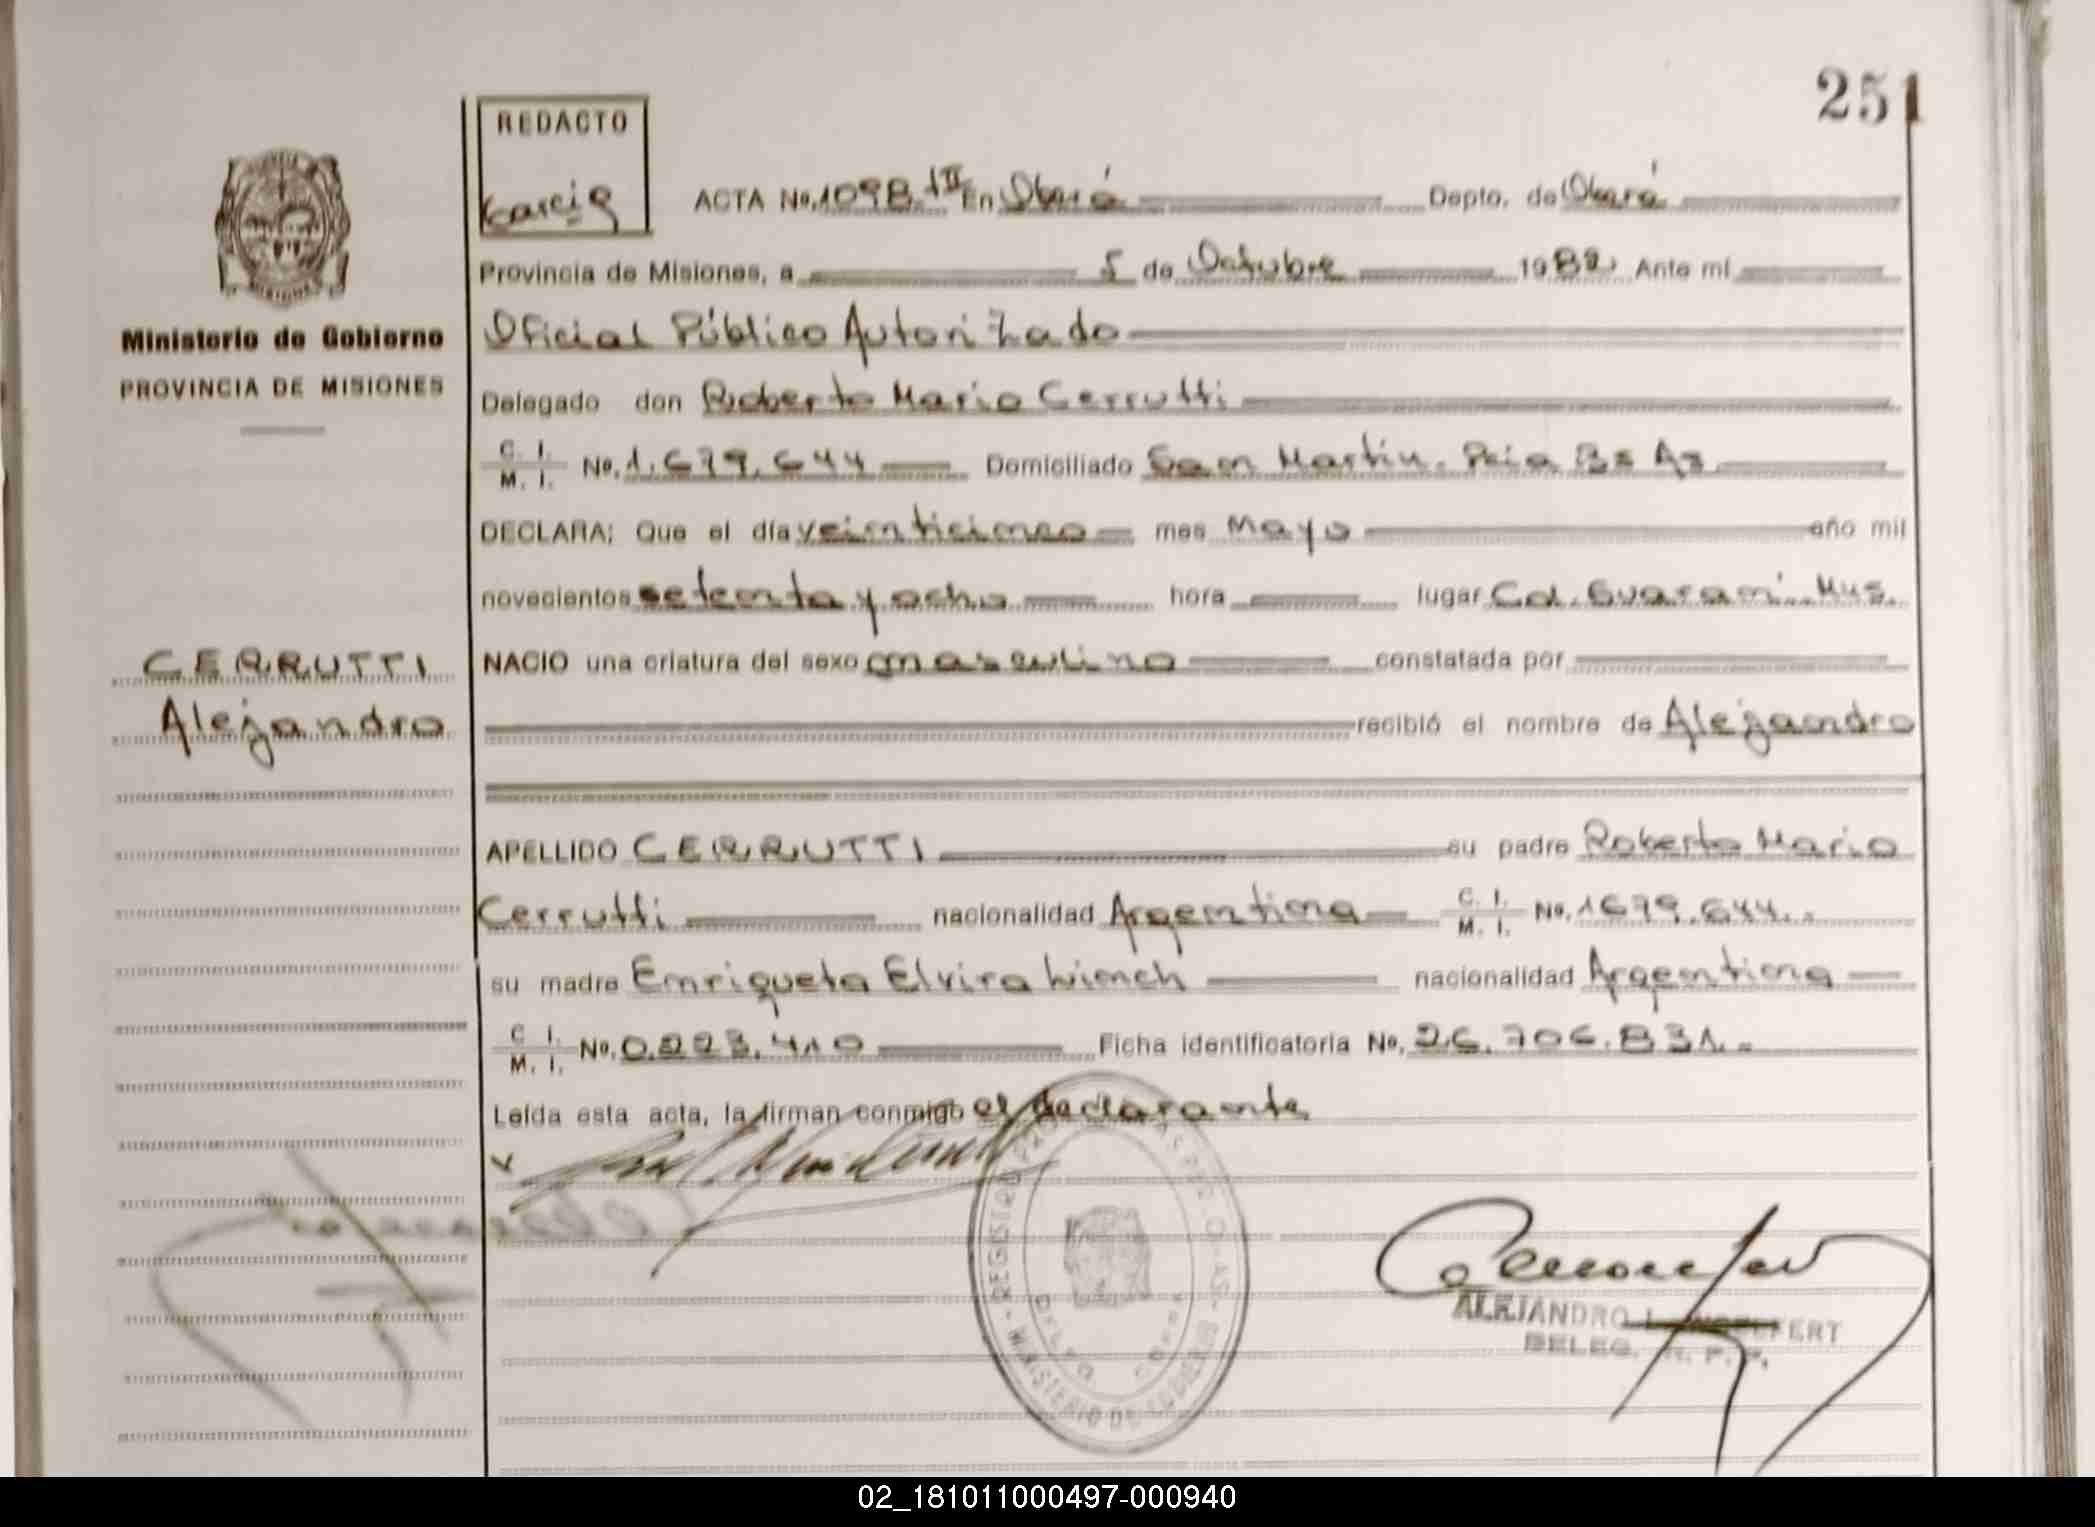 251
REDACTO
Garcia
ACTA No. 1098 tII En Oberá Depto. de Oberá
Provincia de Misiones, a 5 de Octubre 1982 Ante mí
Oficial Público Autorizado
Delegado don Roberto Mario Cerrutti
C. I. M. I. No. 1.679.644 Domiciliado San Martin. Pcia Bs As
DECLARA; Que el día veinticinco mes Mayo año mil
novecientos setenta y ocho hora lugar Cd. Guaraní. Mns.
NACIO una criatura del sexo masculino constatada por
recibió el nombre de Alejandro
APELLIDO CERRUTTI su padre Roberto Mario
Cerrutti nacionalidad Argentina C. I. M. I. No. 1679.644..
su madre Enriqueta Elvira nacionalidad Argentina
C. I. M. I. No. 0.223.410 Ficha identificatoria No. 26.706.831.-
Leída esta acta, la firman conmigo el declarante
ALEJANDRO
DELEG. R. P. P.
Ministerio de Gobierno
PROVINCIA DE MISIONES
CERRUTTI
Alejandro
02_181011000497-000940